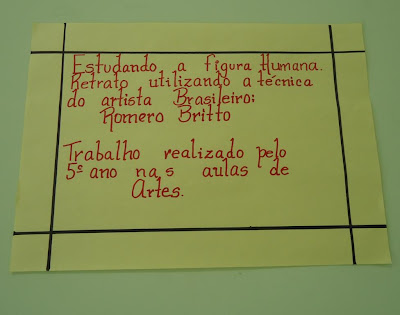 Estudando a figura Humana.
Retrato utilizando a técnica
do artista Brasileiro:
Romero Britto
Trabalho realizado pelo
5º ano nas aulas de
Artes.